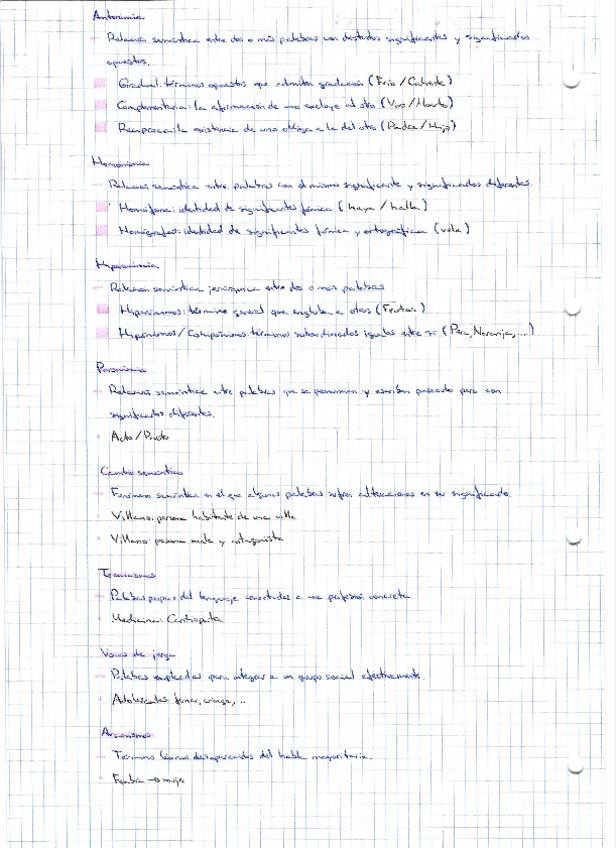 Antonimia
Relación semántica entre dos o más palabras con distintos significantes y significados
opuestos.
Gradual: términos opuestos que admiten gradación (Frío / Caliente)
Complementaria: la afirmación de uno excluye al otro (Vivo / Muerto)
Recíproca: la existencia de uno obliga a la del otro (Padre / Hijo)
Homonimia
Relación semántica entre palabras con el mismo significante y significados diferentes.
Homófonas: identidad de significantes fónica (haya / halla)
Homógrafas: identidad de significantes fónica y ortográfica (vela)
Hiperonimia
Relación semántica jerárquica entre dos o más palabras
Hiperónimos: término general que engloba a otros (Frutas)
Hipónimos / Cohipónimos: términos subordinados iguales entre sí (Pera, Naranja, ...)
Paronimia
Relación semántica entre palabras que se pronuncian y escriben parecido pero con
significados diferentes.
Acto /
Cambio semántico
Fenómeno semántico en el que algunas palabras sufren alteraciones en su significado
Villano: persona habitante de una villa
Villano: persona mala y antagonista
Tecnicismos
Palabras propias del lenguaje conectadas a una profesión concreta
Medicina:
Voces de jerga
Palabras empleadas para integrar a un grupo social efectivamente.
Adolescentes: cringe, ...
Arcaísmos
Términos léxicos desaparecidos del habla mayoritaria.
→ mujer